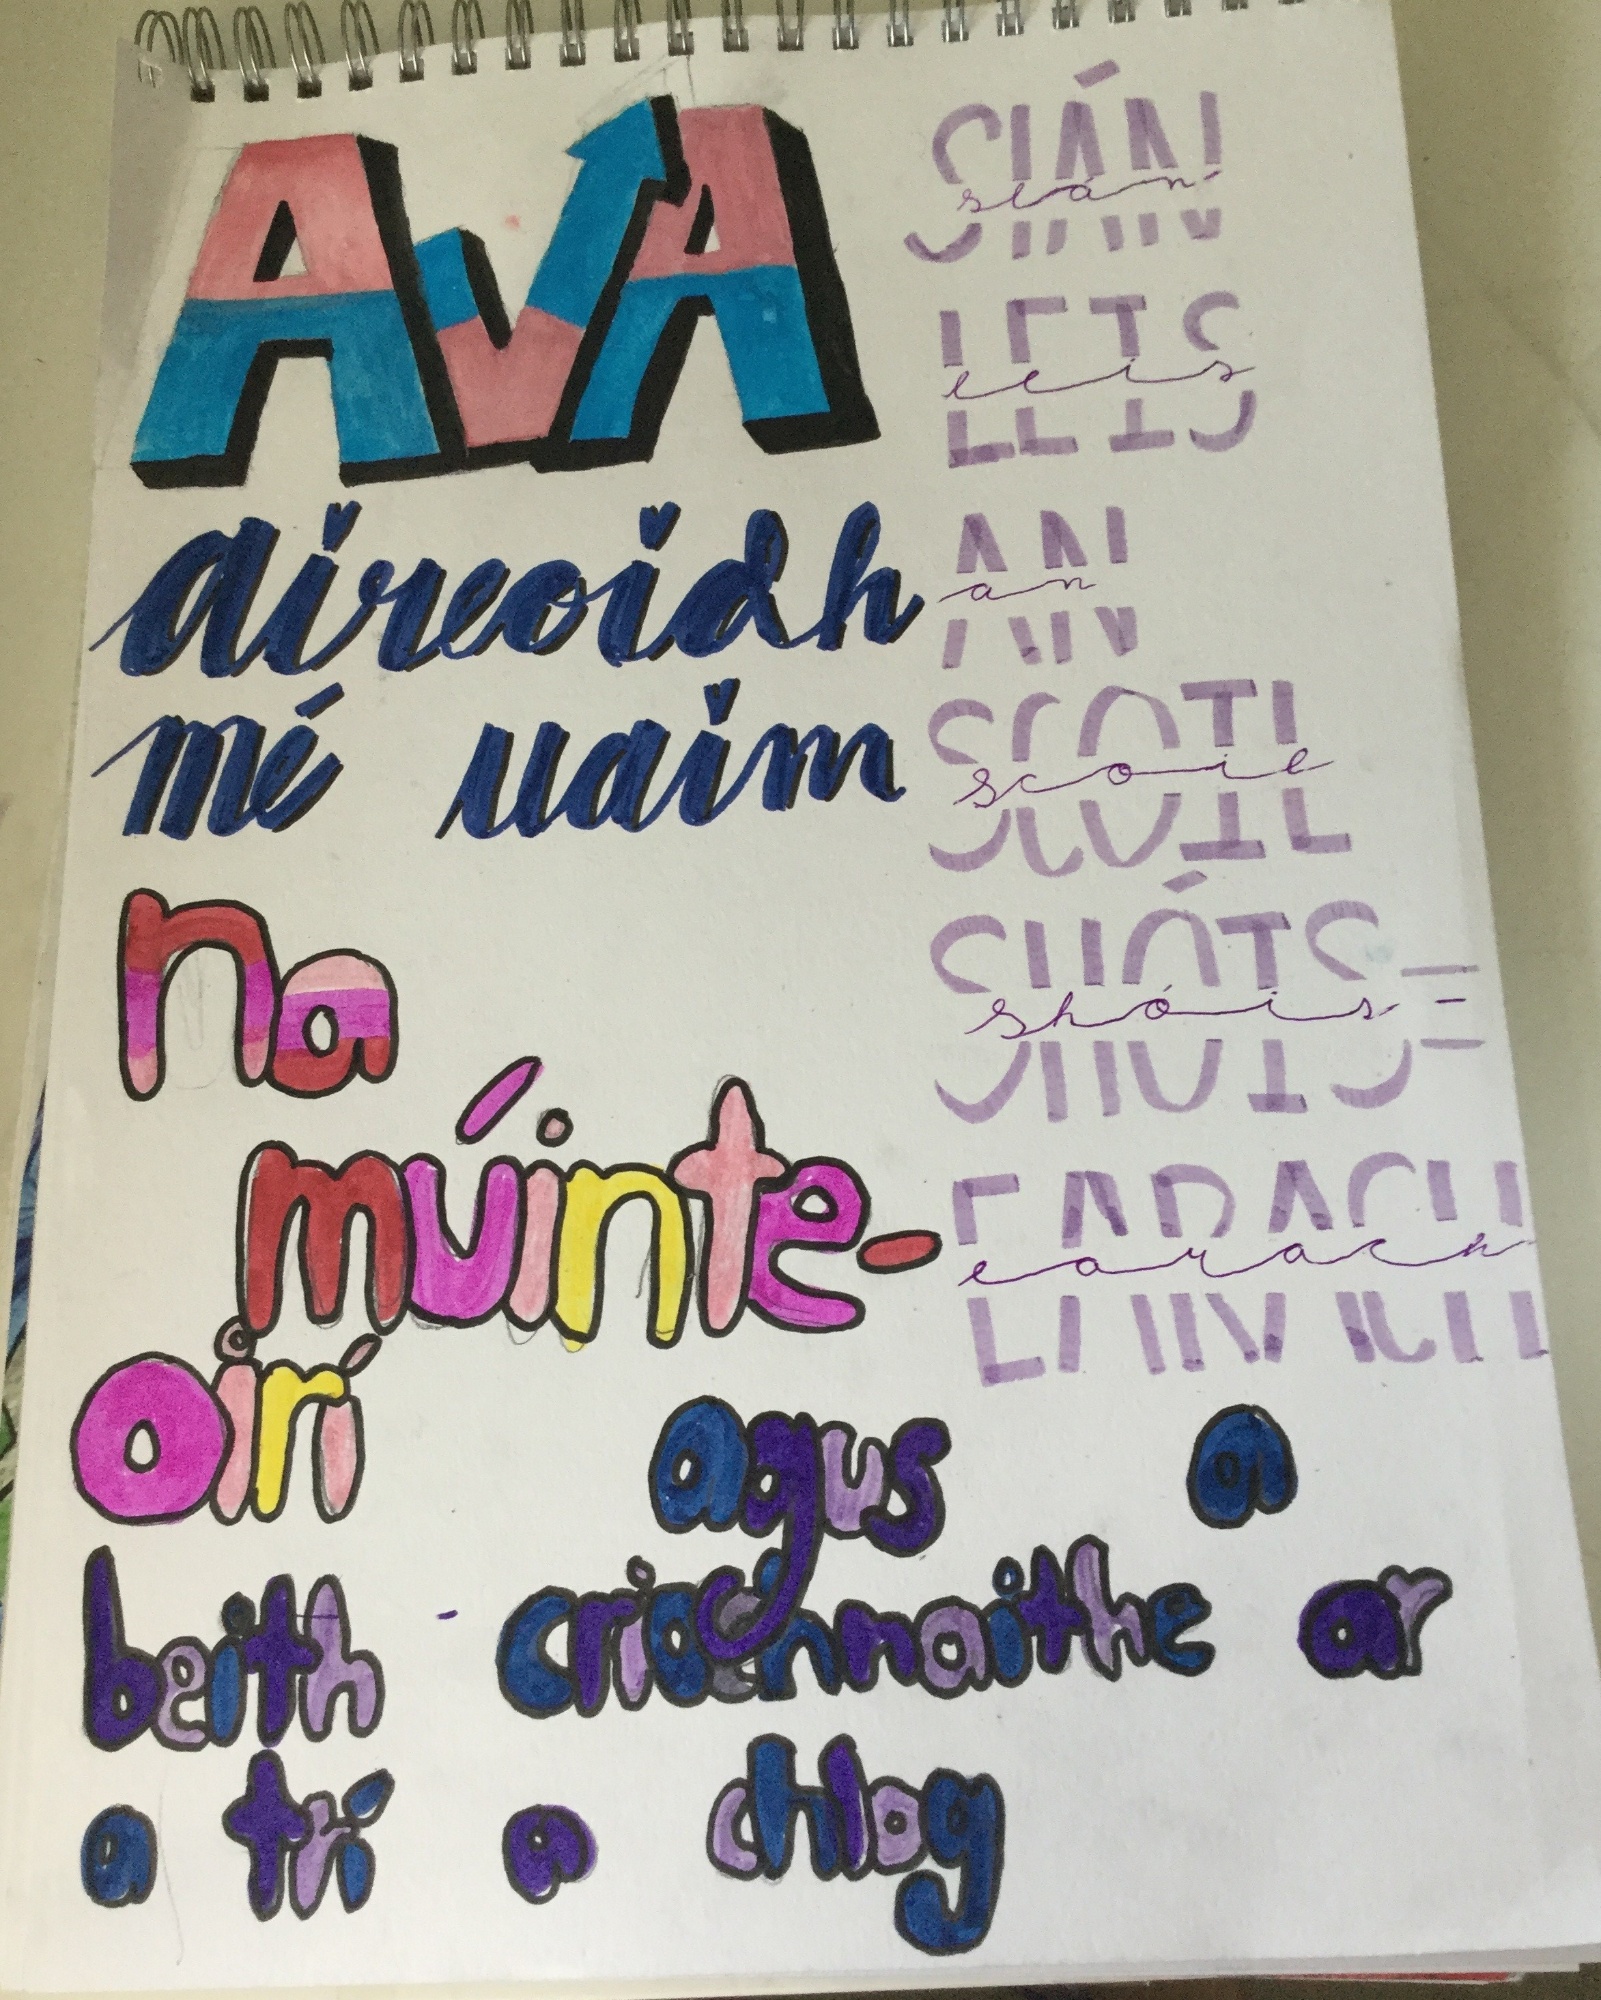 AVA
aireoidh
mé uaim
na
múinte-
oirí agus a
beith criochnaithe ar
a trí a chlog
SLÁN
slán
LEIS
leis
AN
an
SCOIL
scoil
SHÓIS-
shóis-
EARACH
earach